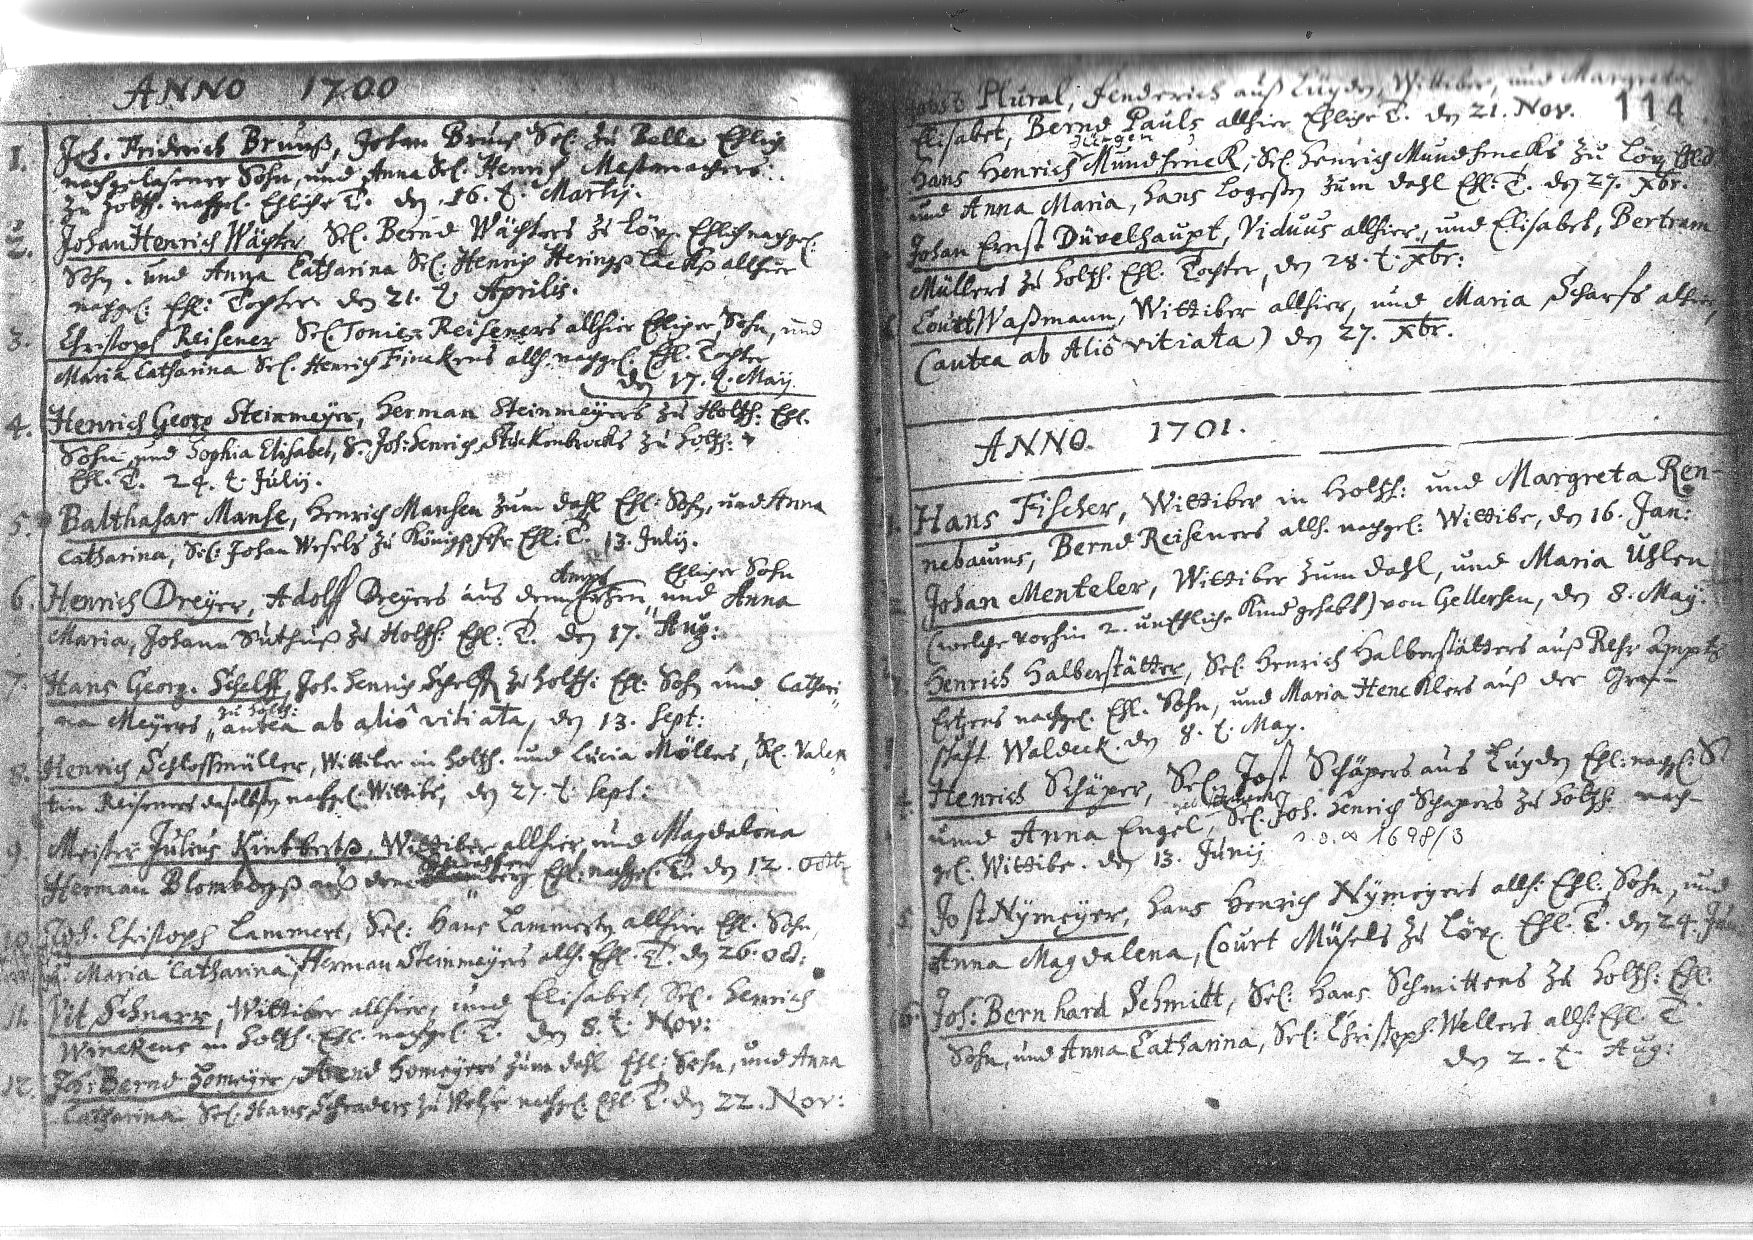 ANNO 1700
1. Joh. Friderich Bruuß, Johan Bruuß Sel. zu Belle Ehlich
nachgelasener Sohn, und Anna Sel. Henrich Mestmachers
zu Holtzh. nachgel. Ehliche T. den 16. t. Martij.
2. Johan Henrich Wächter Sel. Bernd Wächters zu Löw. Ehlich nachgel.
Sohn. und Anna Catharina Sel. Henrich allhier
nachgel. Ehl: Tochter den 21. t. Aprilis.
3. Christoph Reisener Sel. Tonies Reiseners allhier Ehlicher Sohn, und
Maria Catharina Sel. Henrich Finckens allh. nachgel. Ehl. Tochter
den 17. t. May
4. Henrich Georg Steinmeÿer, Herman Steinmeÿers zu Holtzh: Ehl.
Sohn, und Sophia Elisabet, S. Joh: Henrich Stückenbrocks zu Holtzh:
Ehl. T. 24. t. Julij.
5. Balthasar Manse, Henrich Mansen zum dahl Ehl: Sohn, und Anna
Catharina, Sel: Johan Wesels zu Ehl: T. 13. Julij.
Ampt Ehlicher Sohn
6. Henrich Dreÿer, Adolff Dreÿers aus dem Ertzen und Anna
Maria, Johann Suthuß zu Holtzh: Ehl: T. den 17. Aug:
7. Hans Georg. Schelff, Joh. Henrich Schelff zu Holtzh: Ehl: Sohn und Cathari-
zu Holtzh:
na Meÿers, antea ab aliô vitiata, den 13. Sept:
8. Henrich Schloßmüller, Wittiber in Holtzh. und Lucia Möllers, Sel. Valen-
tin Reiseners daselbsten nachgel. Wittibe, den 27. t. Sept:
9. Meister Julius, Wittiber allhier und Magdalena
Herman Blombergß auß dem Ehl: nachgel. T. den 12. Octb
10. Joh. Christoph Lammert, Sel: Hans Lammerts allhier Ehl. Sohn,
u. Maria Catharina, Herman Steinmeÿers allh. Ehl. T. den 26. Oct:
11. Vit Schnarr, Wittiber allhier, und Elisabet, Sel. Henrich
Winckens in Holtzh. Ehl. nachgel. T. den 8. t. Nov:
12. Joh: Bernd Homeÿer, Arend Homeÿers zum dahl Ehl: Sohn, und Anna
Catharina Sel. Hans Schraders zu nachgel. Ehl. T. den 22. Nov:
Plural, Fenderich auß Lüyden, Wittiber, und Margreta
114
Elisabet, Bernd Pauls allhier Ehliche T. den 21. Nov.
Hans Henrich Mundhenck, Sel. Henrich Mundhencks zu Löw. Ehl.
und Anna Maria, Hans Logeßen zum dahl Ehl: T. den 27. xbr.
Johan Ernst Düvelhaupt, Viduus allhier, und Elisabet, Bertram
Müllers zu Holtzh. Ehl. Tochter, den 28. t. xbr:
Court Waßmann, Wittiber allhier, und Maria Scharfs alhier,
(antea ab Aliô vitiata) den 27. xbr.
ANNO. 1701.
Hans Fischer, Wittiber in Holtzh: und Margreta Ren-
nebaums, Bernd Reiseners allh. nachgel: Wittibe, den 16. Jan:
Johan Menteler, Wittiber zum dahl, und Maria Uhlen
(welche vorhin 2. unEhliche Kind gehabt) von Gellersen, den 8. Maÿ.
3. Henrich Halberstätter, Sel. Henrich Halberstätters auß Rehr Ampts
Ertzens nachgel. Ehl. Sohn, und Maria Hencklers auß der Graf-
schaft Waldeck. den 8. t. May.
4. Henrich Schäper, Sel. Jost Schäpers aus Luyden Ehl: nachgel: S.
unnd Anna Engel, Sel. Joh. Henrich Schapers zu Holtzh. nach-
gel. Wittibe. den 13. Junij
s. o. ∞ 1698/3
5. Jost Nÿmeÿer, Hans Henrich Nÿmeÿers allh: Ehl: Sohn, und
Anna Magdalena, Court Müsels zu Löw. Ehl. T. den 24. Jun
6. Joh: Bernhard Schmitt, Sel: Hans Schmittens zu Holtzh: Ehl.
Sohn, und Anna Catharina, Sel: Christoph Wellers allh: Ehl. T
den 2. t. Aug: